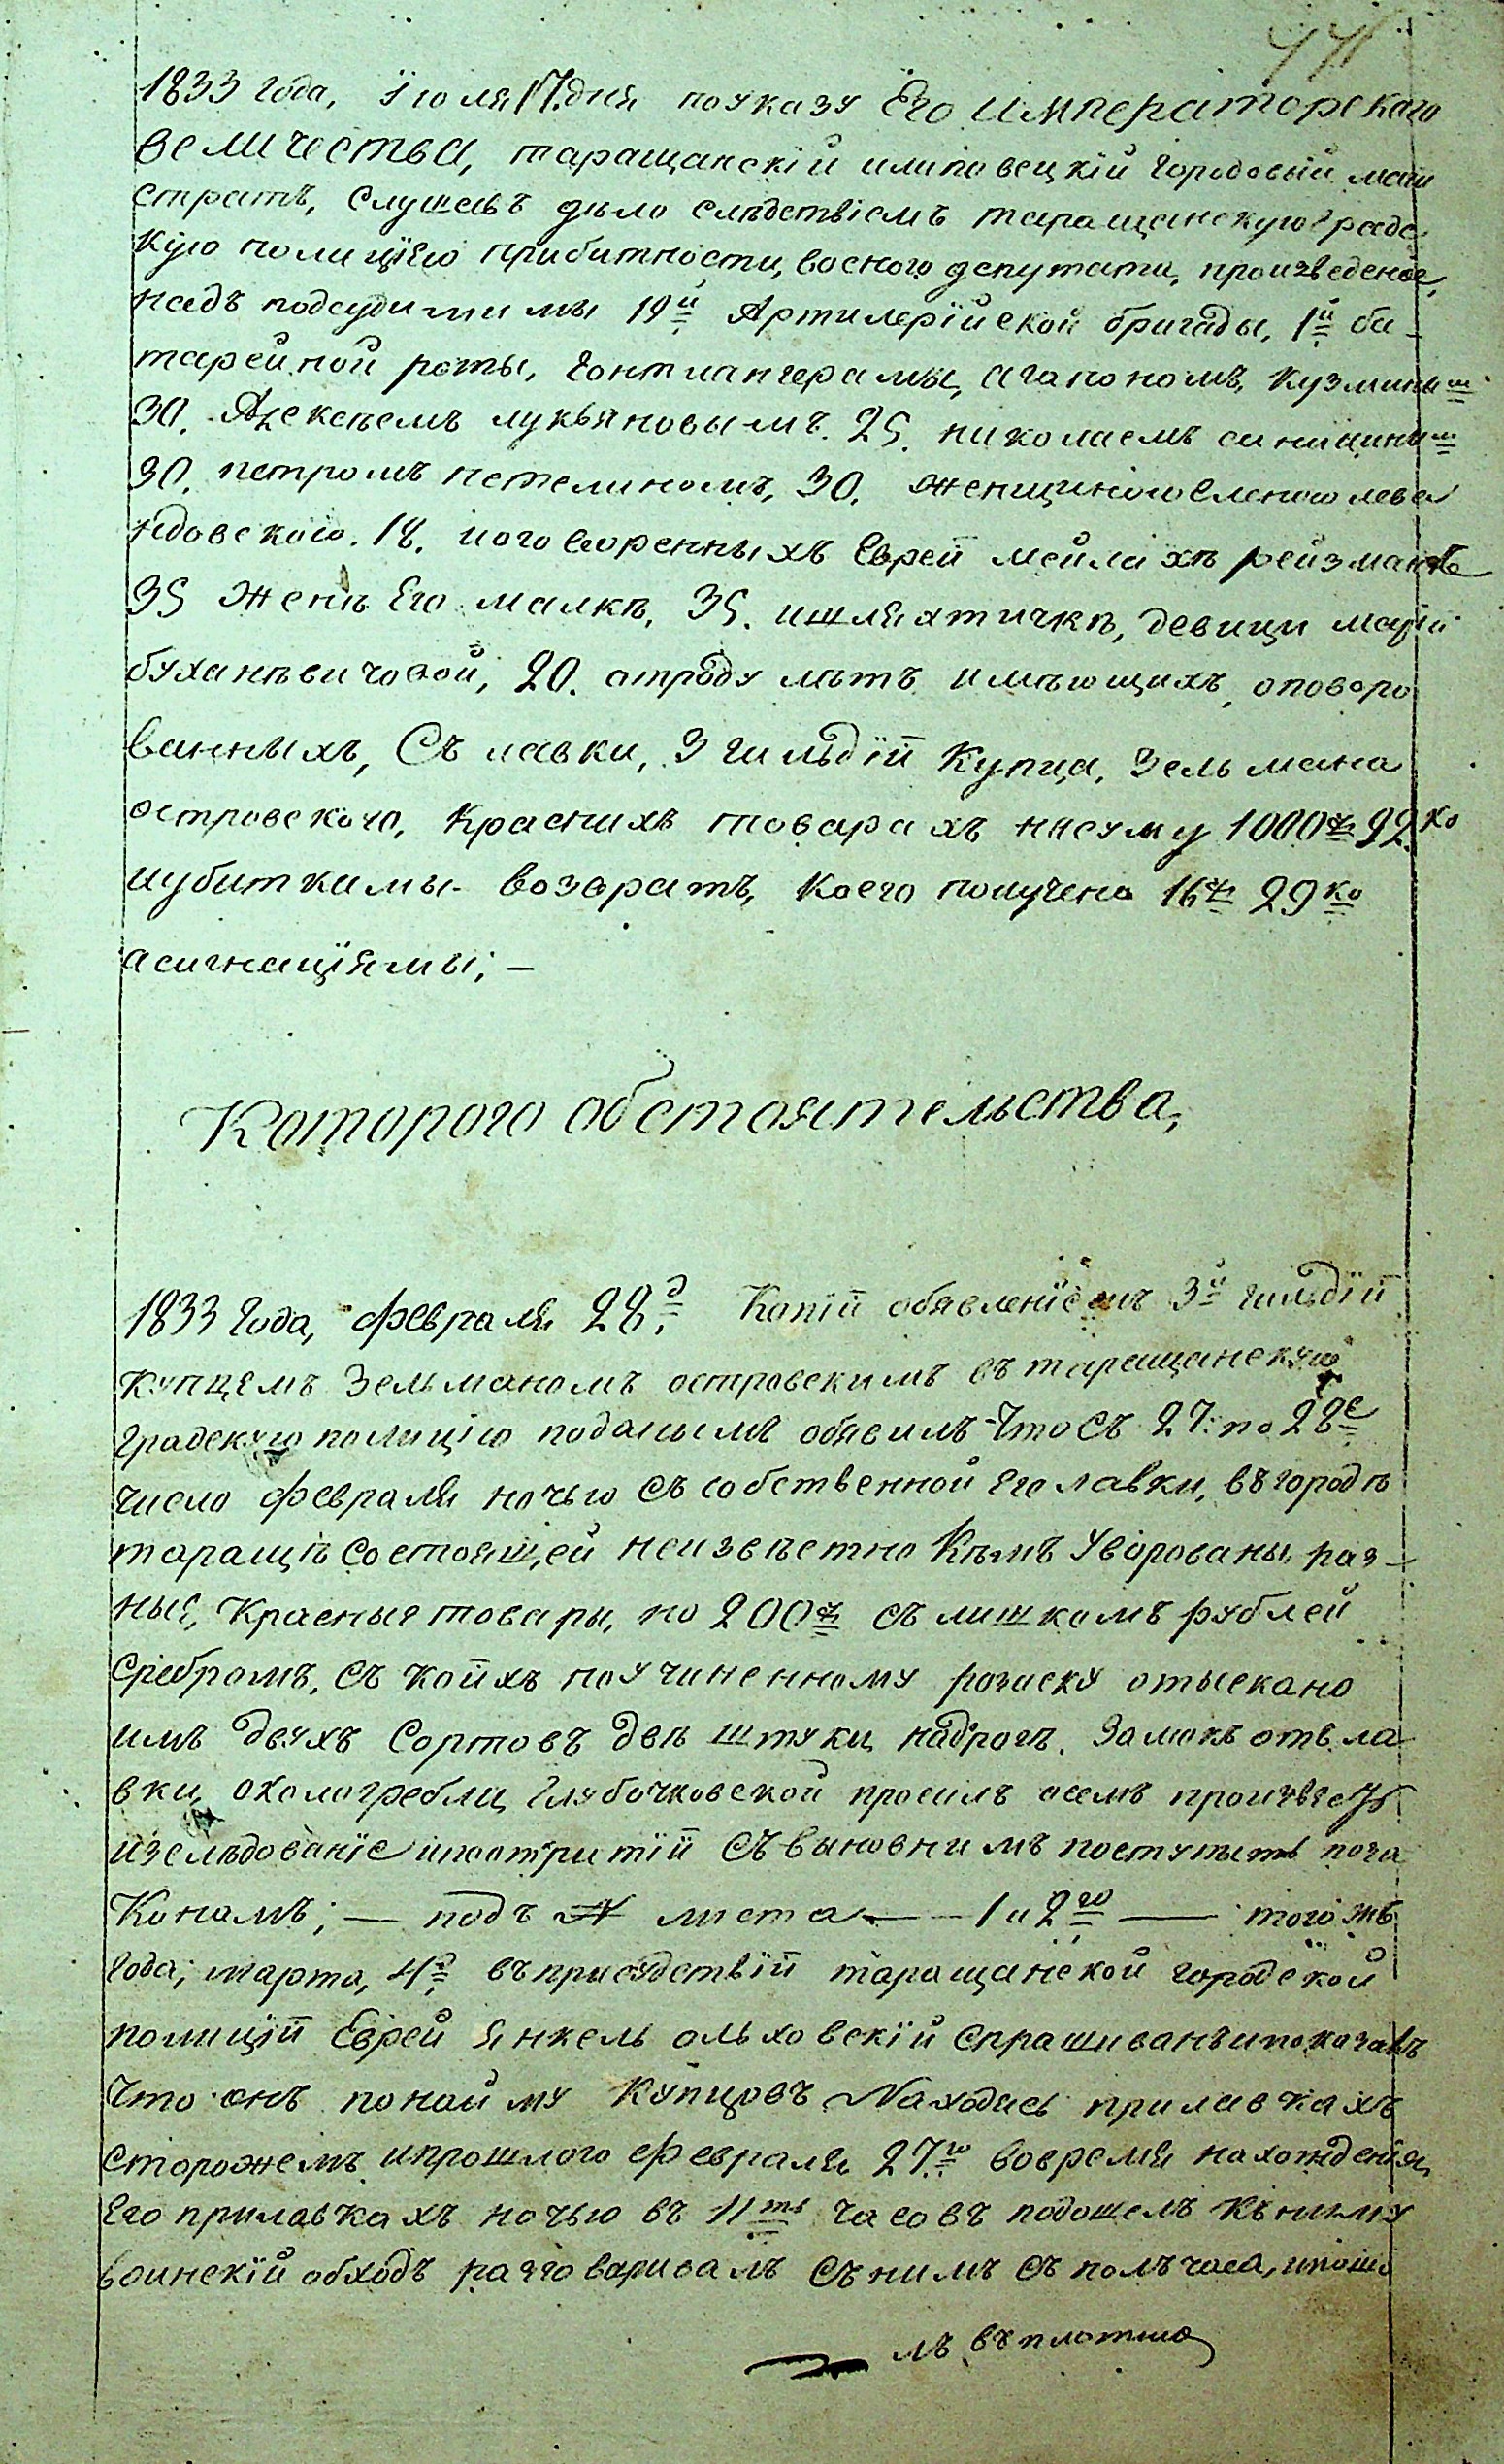 1833 года, Їюля 17. дня поуказу Его императорскаго
величества, таращанскїй илиповецкїй городовый маги
стратъ, слушавъ дѣло следствїемъ таращанскую градс
кую полицїею прибитности, военого депутата, произведеное,
надъ подсудимимы 19й Артилерїйской бригады, 1й ба-
тарейной роты, гонтлангерамы, агапономъ, кузминым
30. Алексѣемъ лукьяновымъ. 25. николаемъ синицыным
30. петромъ петелиномъ, 30. женщиного Еленою лева
ндовского. 18. иоговоренныхъ Еврей мейлахѣ рейзманѣ
35 женѣ Его малкѣ, 35. ишляхтичкѣ, девици марїи
буханѣвичовой, 20. отроду лѣтъ имѣющихъ, оповоро
ванныхъ, Съ лавки, 3 гильдїй Купца, Зельмана
островского, Красныхъ товарахъ насуму 1000 р 92. ко
иубиткамы. возвратъ, коего получено 16 р 29 ко
асигнацїямы; —
Которого обстоятельства,
1833 года, февраля 28го. Копїй обявленїемъ 3й гильдїй
купцемъ Зельманомъ островскимъ въ таращанскую
градскую полицїю поданымъ обявилъ Что Съ 27: по 28е
число февраля ночью Съ собственной его лавки, въ городѣ
таращѣ состоящей неизвѣстно Кѣмъ Уворованы раз-
ныя, Красные товары, на 200 р съ лишкомъ рублей
сребромъ, Съ койхъ поучиненному розиску отыскано
имъ двухъ Сортовъ двѣ штуки надрогѣ. Замокъ отъ ла
вки, окологребли, Глубочковской просилъ осемъ произвесть
изслѣдованїе ипоотритїй Съ выновнимъ поступить поза
Конамъ; — подъ № листа — 1 и 2го — того жъ
года, марта, 4го въ присудствїй таращанской городской
полицїй Еврей янкель ольховскїй спрашиванъ ипоказавъ
Что онъ понайму Купцовъ Находясь прилавкахъ
сторожемъ ипрошлого февраля 27го вовремя нахожденїя
Его прилавкахъ ночью въ 11ть часовъ подошелъ Къ нему
воинскїй обходъ разговаривалъ Съ нимъ Съ полъ часа, ипошо
лъ въ плотную